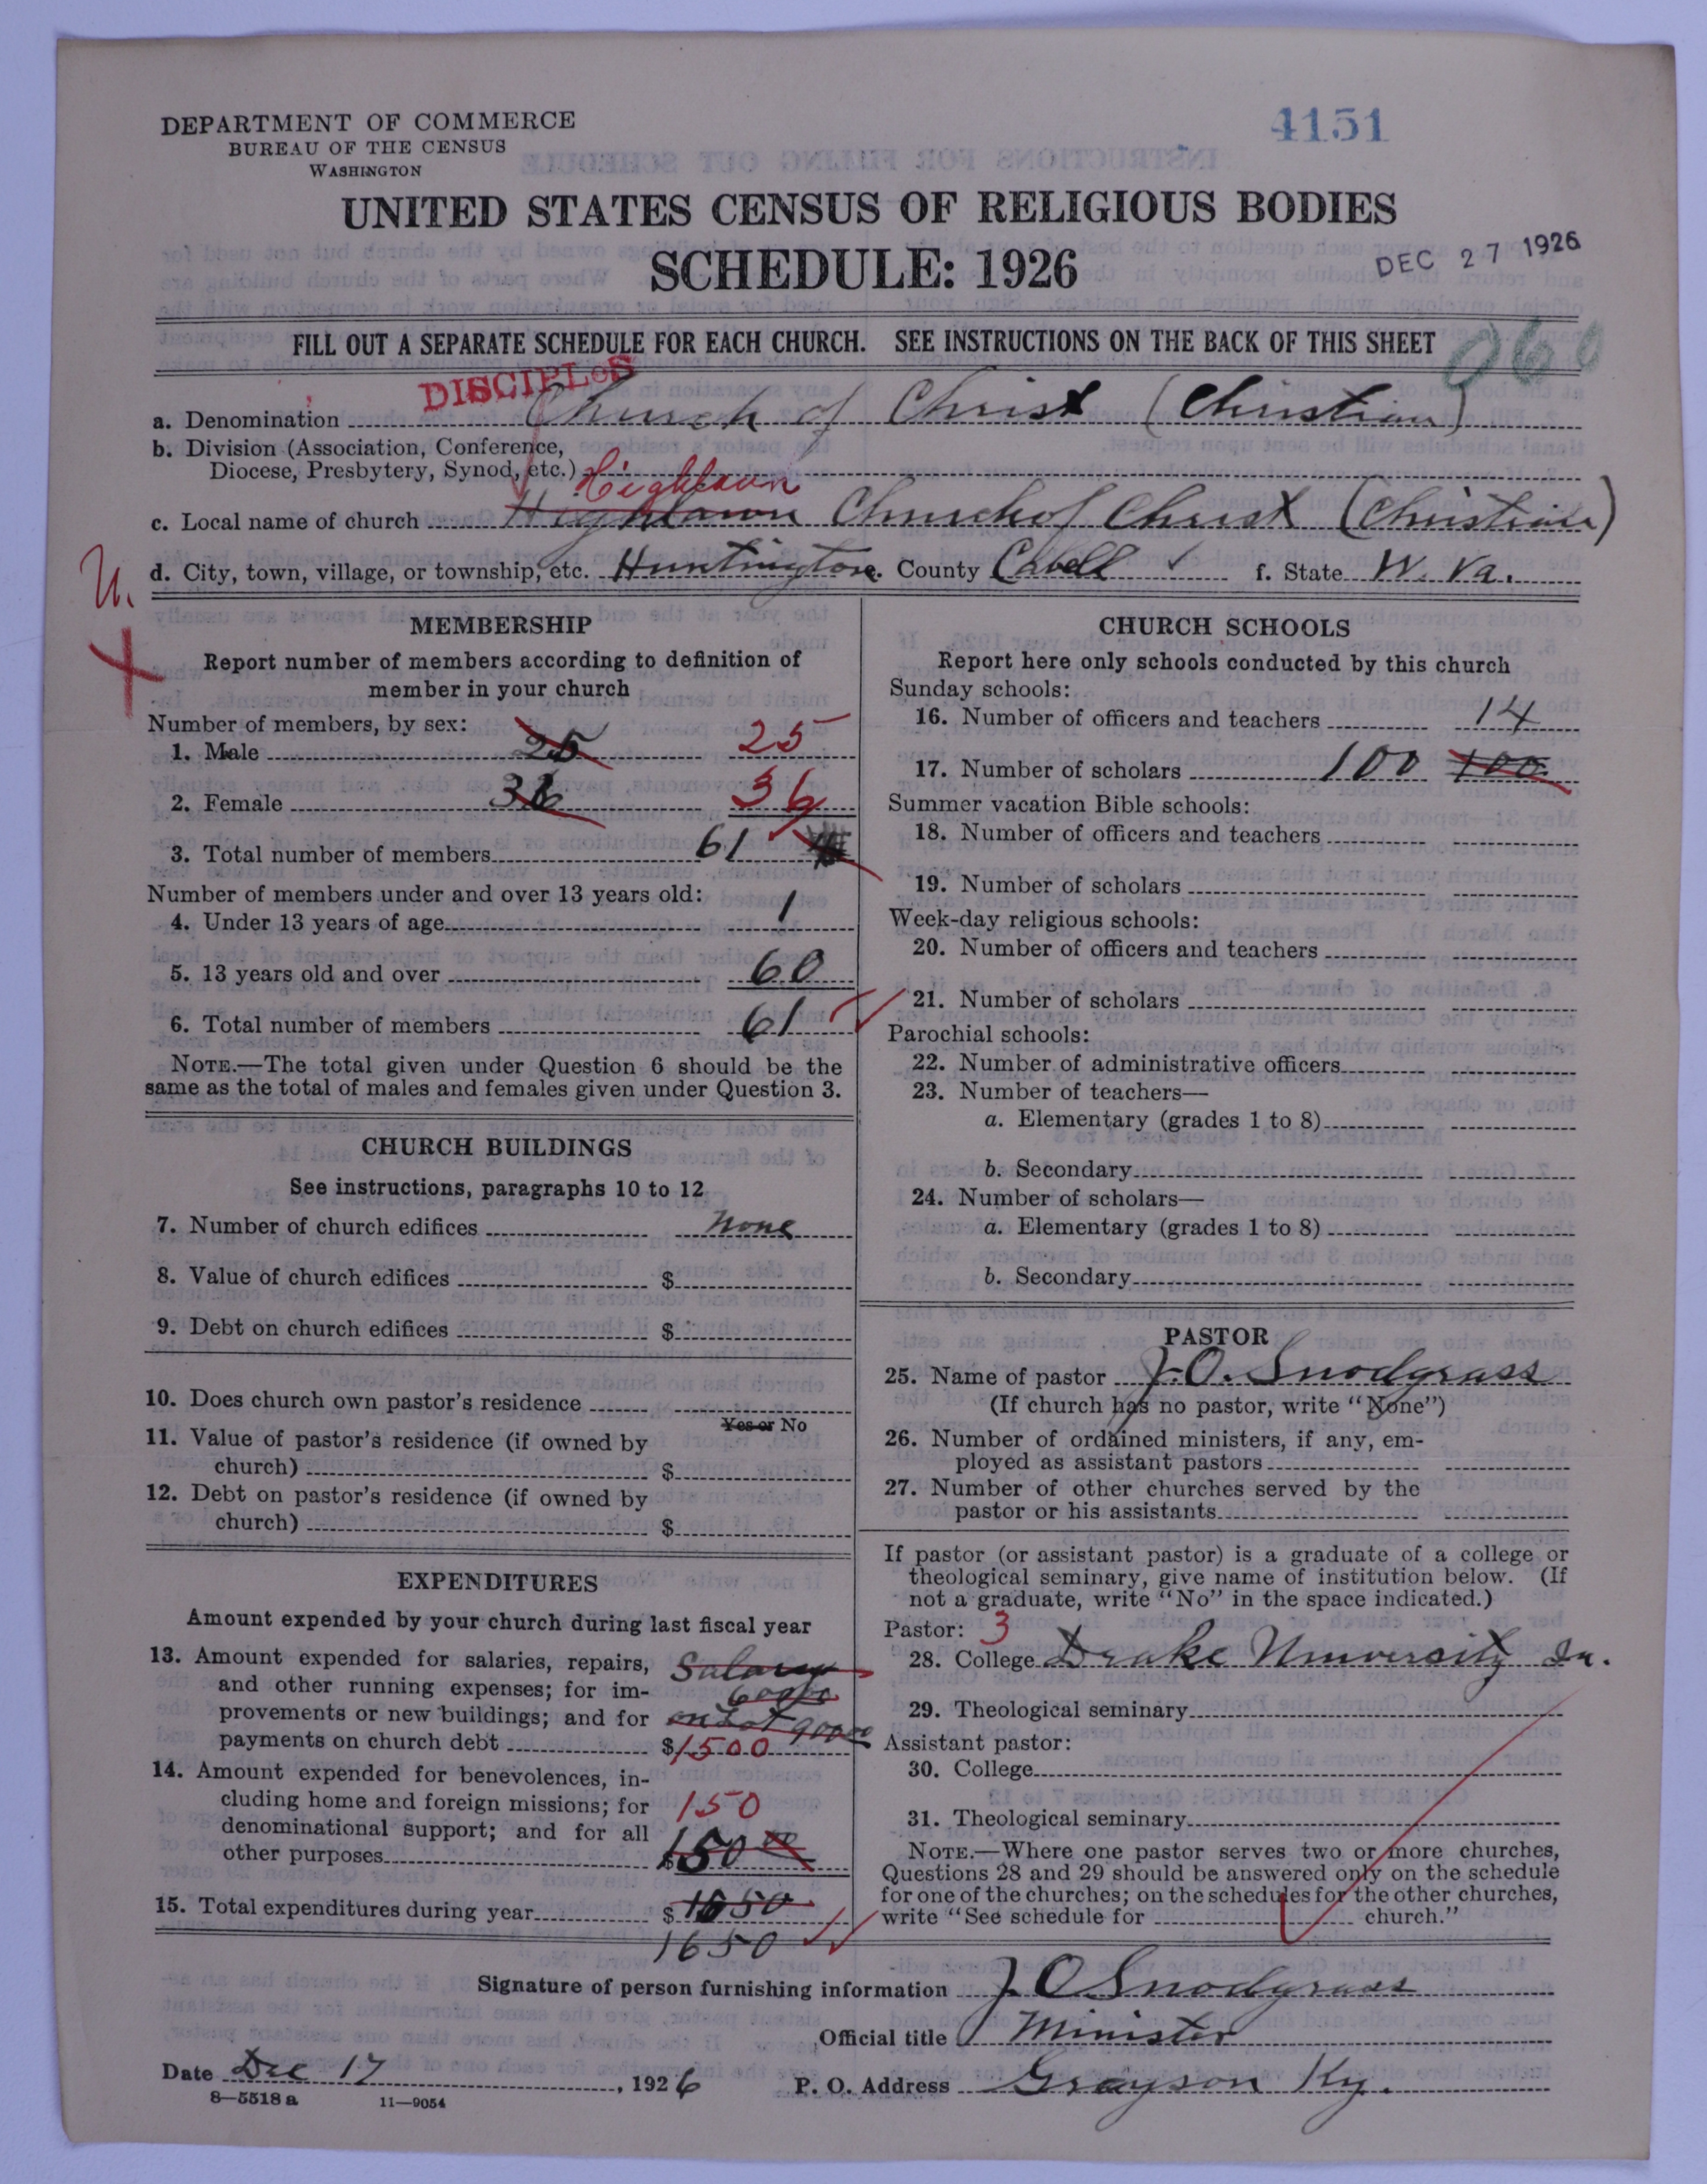 DEPARTMENT OF COMMERCE
BUREAU OF THE CENSUS
WASHINGTON
4151
UNITED STATES CENSUS OF RELIGIOUS BODIES
SCHEDULE: 1926
DEC 27 1926
FILL OUT A SEPARATE SCHEDULE FOR EACH CHURCH. SEE INSTRUCTIONS ON THE BACK OF THIS SHEET
060
DISCIPLES
a. Denomination Church of Christ (Christian)
b. Division (Association, Conference,
Diocese, Presbytery, Synod, etc.)
Highlawn
c. Local name of church Highlawn Church of Christ (Christian)
d. City, town, village, or township, etc. Huntington e. County Cabell ✓ f. State W. Va.
U.
X
MEMBERSHIP
Report number of members according to definition of
member in your church
Number of members, by sex:
1. Male 25 25
2. Female 36 36
3. Total number of members 61
Number of members under and over 13 years old:
4. Under 13 years of age 1
5. 13 years old and over 60
6. Total number of members 61
NOTE.—The total given under Question 6 should be the
same as the total of males and females given under Question 3.
CHURCH BUILDINGS
See instructions, paragraphs 10 to 12
7. Number of church edifices none
8. Value of church edifices $
9. Debt on church edifices $
10. Does church own pastor's residence
Yes or No
11. Value of pastor's residence (if owned by
church) $
12. Debt on pastor's residence (if owned by
church) $
EXPENDITURES
Amount expended by your church during last fiscal year
13. Amount expended for salaries, repairs, Salary
and other running expenses; for im- 600
provements or new buildings; and for on Lot 900
payments on church debt $1500
14. Amount expended for benevolences, in-
cluding home and foreign missions; for 150
denominational support; and for all
other purposes $150 00
15. Total expenditures during year $1650
1650
CHURCH SCHOOLS
Report here only schools conducted by this church
Sunday schools:
16. Number of officers and teachers 14
17. Number of scholars 100 100
Summer vacation Bible schools:
18. Number of officers and teachers
19. Number of scholars
Week-day religious schools:
20. Number of officers and teachers
21. Number of scholars
Parochial schools:
22. Number of administrative officers
23. Number of teachers—
a. Elementary (grades 1 to 8)
b. Secondary
24. Number of scholars—
a. Elementary (grades 1 to 8)
b. Secondary
PASTOR
25. Name of pastor J. O. Snodgrass
(If church has no pastor, write "None")
26. Number of ordained ministers, if any, em-
ployed as assistant pastors
27. Number of other churches served by the
pastor or his assistants
If pastor (or assistant pastor) is a graduate of a college or
theological seminary, give name of institution below. (If
not a graduate, write "No" in the space indicated.)
Pastor: 3
28. College Drake University Ia.
29. Theological seminary
Assistant pastor:
30. College
31. Theological seminary
NOTE.—Where one pastor serves two or more churches,
Questions 28 and 29 should be answered only on the schedule
for one of the churches; on the schedules for the other churches,
write "See schedule for church."
Signature of person furnishing information J O Snodgrass
Official title Minister
Date Dec 17, 1926 P. O. Address Grayson Ky.
8—5518 a 11—9054